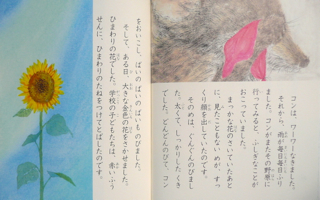 コンは、ワーとなきました。
それから、雨が毎日毎日ふり
ました。コンがまたその野原に
行ってみると、ふしぎなことが
おこっていました。
まっかな花のさいていたあと
に、見たこともない めが、すっ
くり顔を出していたのです。
そのめは、ぐんぐんのびまし
た。太くて、しっかりしたくき
でした。どんどんのびて、コン
をおいこし、ぱいのぱいのぱいものびました。
そして、ある日、大きな金色の花をさかせました。
ひまわりの花でした。学校の子どもたちは、赤いふう
せんに、ひまわりのたねをつけてとばしたのです。